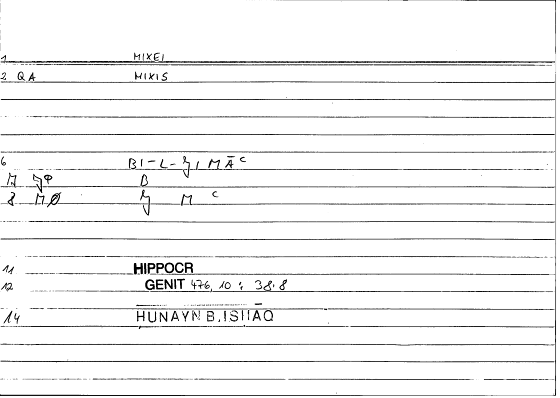 1 MIXEI
2 QA MIXIS
6 BI-L-ǦIMĀC
B
8 MØ M C
11 HIPPOCR
12 GENIT 476, 10 : 38.8
14 HUNAYN B. ISHĀQ